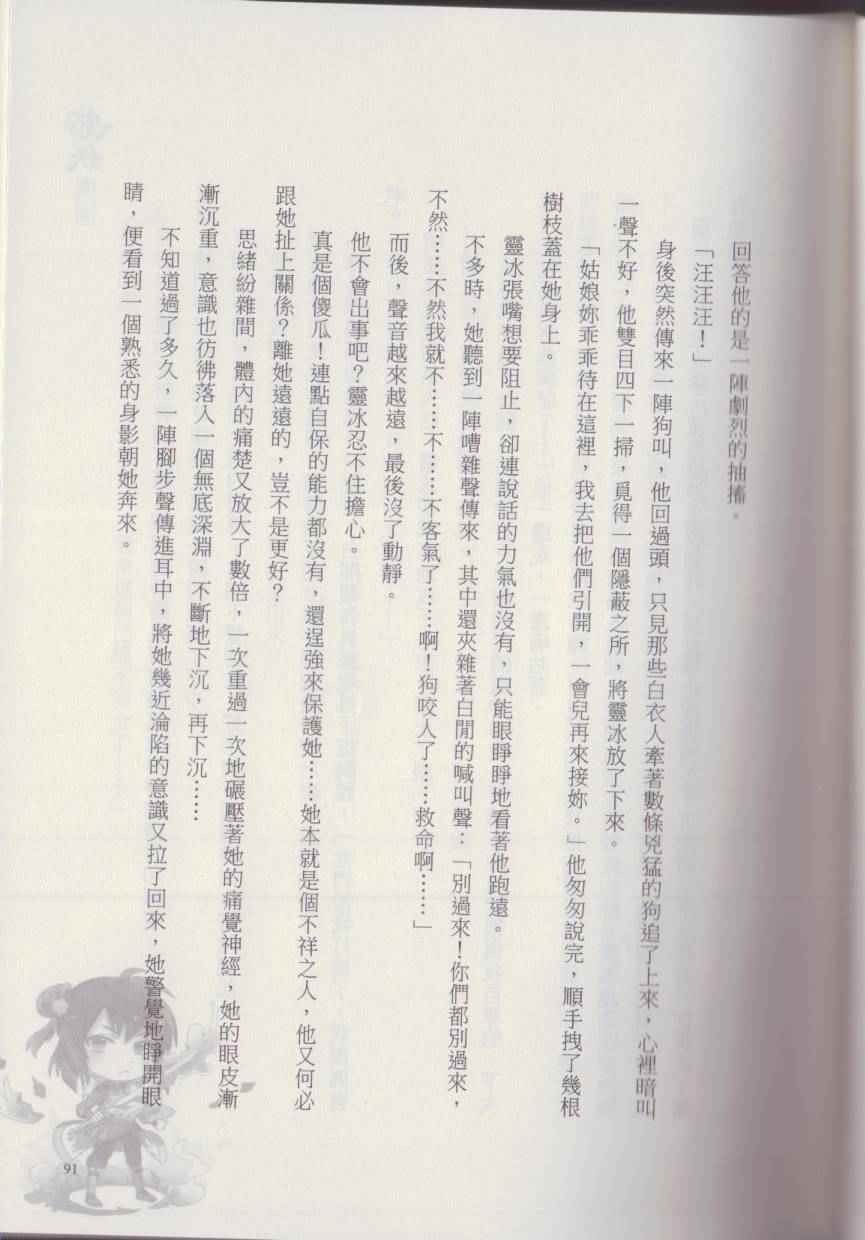 回答他的是一陣劇烈的抽搐。
「汪汪汪！」
身後突然傳來一陣狗叫，他回過頭，只見那些白衣人牽著數條兇猛的狗追了上來，心裡暗叫
一聲不好，他雙目四下一掃，覓得一個隱蔽之所，將靈冰放了下來。
「姑娘妳乖乖待在這裡，我去把他們引開，一會兒再來接妳。」他匆匆說完，順手拽了幾根
樹枝蓋在她身上。
靈冰張嘴想要阻止，卻連說話的力氣也沒有，只能眼睜睜地看著他跑遠。
不多時，她聽到一陣嘈雜聲傳來，其中還夾雜著白閒的喊叫聲：「別過來！你們都別過來，
不然……不然我就不……不……不客氣了……啊！狗咬人了……救命啊……」
而後，聲音越來越遠，最後沒了動靜。
他不會出事吧？靈冰忍不住擔心。
真是個傻瓜！連點自保的能力都沒有，還逞強來保護她……她本就是個不祥之人，他又何必
跟她扯上關係？離她遠遠的，豈不是更好？
思緒紛雜間，體內的痛楚又放大了數倍，一次重過一次地碾壓著她的痛覺神經，她的眼皮漸
漸沉重，意識也彷彿落入一個無底深淵，不斷地下沉，再下沉……
不知道過了多久，一陣腳步聲傳進耳中，將她幾近淪陷的意識又拉了回來，她警覺地睜開眼
睛，便看到一個熟悉的身影朝她奔來。
91